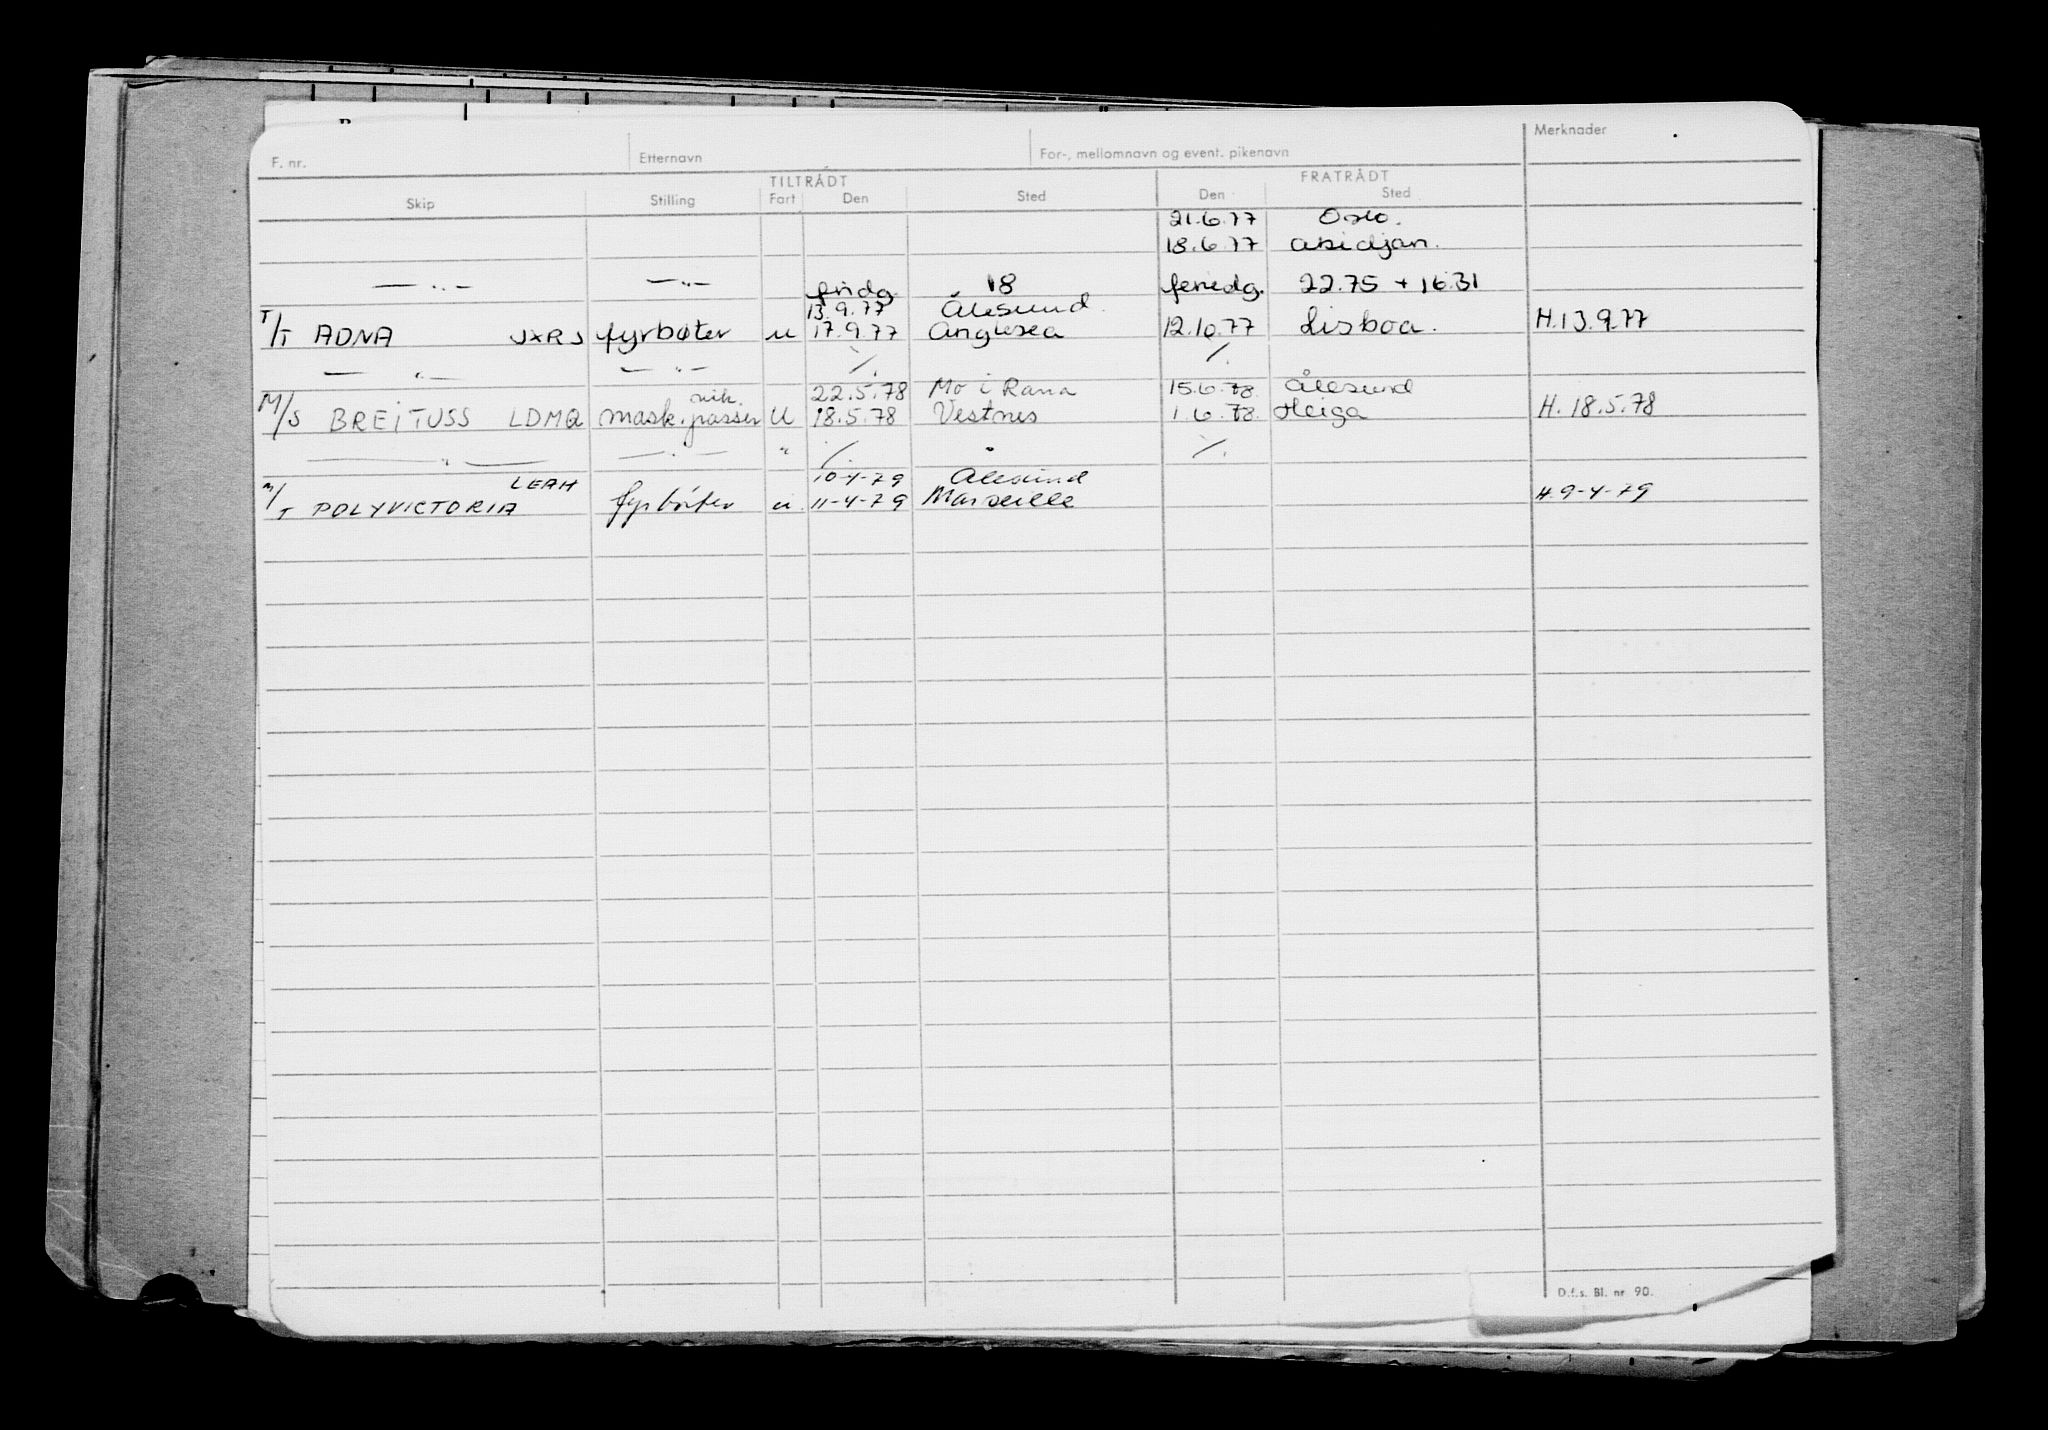 F. nr. Etternavn For-, mellomnavn og event. pikenavn Merknader
TILTRÅDT FRATRÅDT
Skip Stilling Fart Den Sted Den Sted
21.6.77 Oslo.
18.6.77 abidjan.
— " — — " — fridg. 18 feriedg. 22.75 + 16.31
13.9.77 Ålesund.
T/T ADNA JXRJ fyrbøter u 17.9.77 Anglesea 12.10.77 Lisboa. H.13.9.77
— " — — " — ./. ./.
vik. 22.5.78 Mo i Rana 15.6.78. Ålesund
M/S BREITUSS LDMQ mask.passer U 18.5.78 Vestnes 1.6.78. Heiga H. 18.5.78
— " — — " — " ./. " ./.
LEAH 10-4-79 Ålesund
M/T POLYVICTORIA fyrbøter u. 11-4-79 Marseille H.9-4-79
D.f.s. Bl. nr 90.